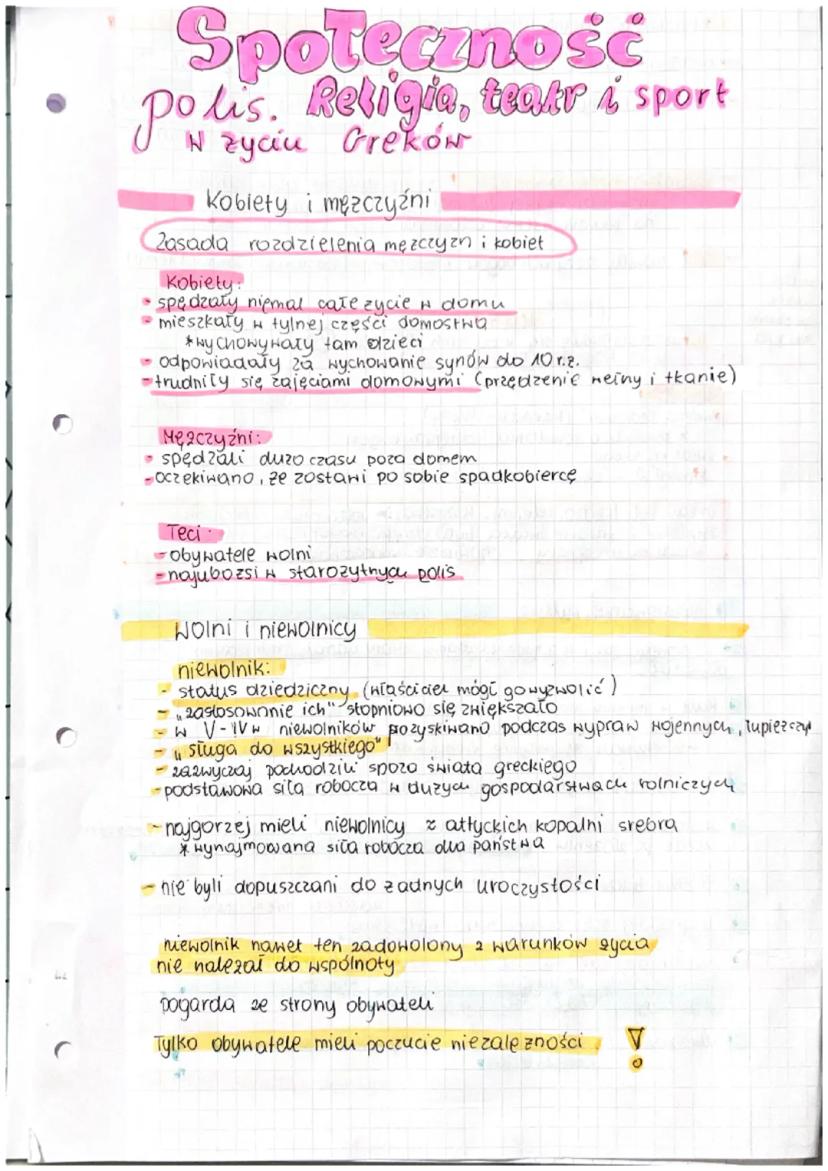 Społeczność
polis. Religia, teatr i sport
w życiu Greków
Kobiety i mężczyźni
Zasada rozdzielenia mężczyzn i kobiet
Kobiety:
- spędzały niemal całe życie w domu
- mieszkały w tylnej części domostwa
* wychowywały tam dzieci
- odpowiadały za wychowanie synów do 10 r.ż.
- trudniły się zajęciami domowymi (przędzenie wełny i tkanie)
Mężczyźni:
- spędzali dużo czasu poza domem
- oczekiwano, że zostawi po sobie spadkobiercę
Teci
- obywatele wolni
- najubożsi w starożytnych polis
Wolni i niewolnicy
niewolnik:
- status dziedziczny (właściciel mógł go wyzwolić)
- "zastosowanie ich" stopniowo się zwiększało
- w V-IV w niewolników pozyskiwano podczas wypraw wojennych, łupieżczych
- "sługa do wszystkiego"
- zazwyczaj pochodzili spoza świata greckiego
- podstawowa siła robocza w dużych gospodarstwach rolniczych
- najgorzej mieli niewolnicy z attyckich kopalni srebra
* wynajmowana siła robocza dla państwa
- nie byli dopuszczani do żadnych uroczystości
niewolnik nawet ten zadowolony z warunków życia
nie należał do wspólnoty
pogarda ze strony obywateli
Tylko obywatele mieli poczucie niezależności !